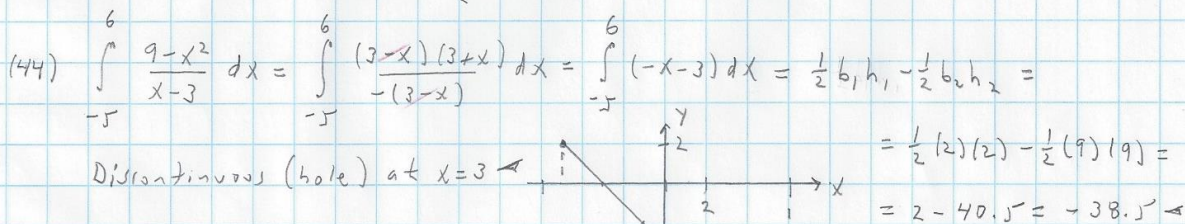 (44) ∫_{-5}^{6} (9-x²)/(x-3) dx = ∫_{-5}^{6} ((3-x)(3+x))/(-(3-x)) dx = ∫_{-5}^{6} (-x-3) dx = ½ b₁h₁ - ½ b₂h₂ =
= ½ (2)(2) - ½ (9)(9) =
Discontinuous (hole) at x=3
= 2 - 40.5 = -38.5
Y
2
X
2